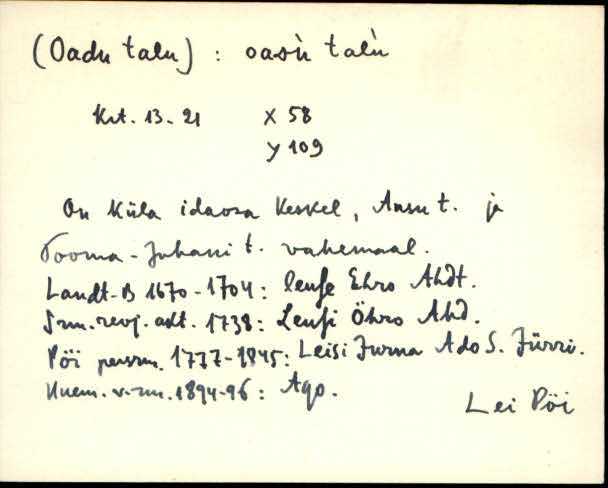 (Oadu talu) : oasù talù
Krt. 13-21 X 58
Y 109
On küla idaosa keskel, Ansu t. ja
Tooma-Juhani t. vahemaal.
Landt-B 1670-1704: leuse Ehro Ahdt.
revj. akt. 1738: Leusi Öhro Ahd.
Pöi persrn. 1777-1845: Leisi Jurna Ado S. Jürri.
1894-96: Ago.
Lei Pöi